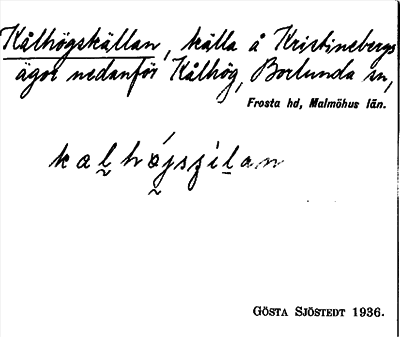 Kålhögskällan, källa å Kristinebergs
ägor nedanför Kålhög, Borlunda sn,
Frosta hd, Malmöhus län.
GÖSTA SJÖSTEDT 1936.